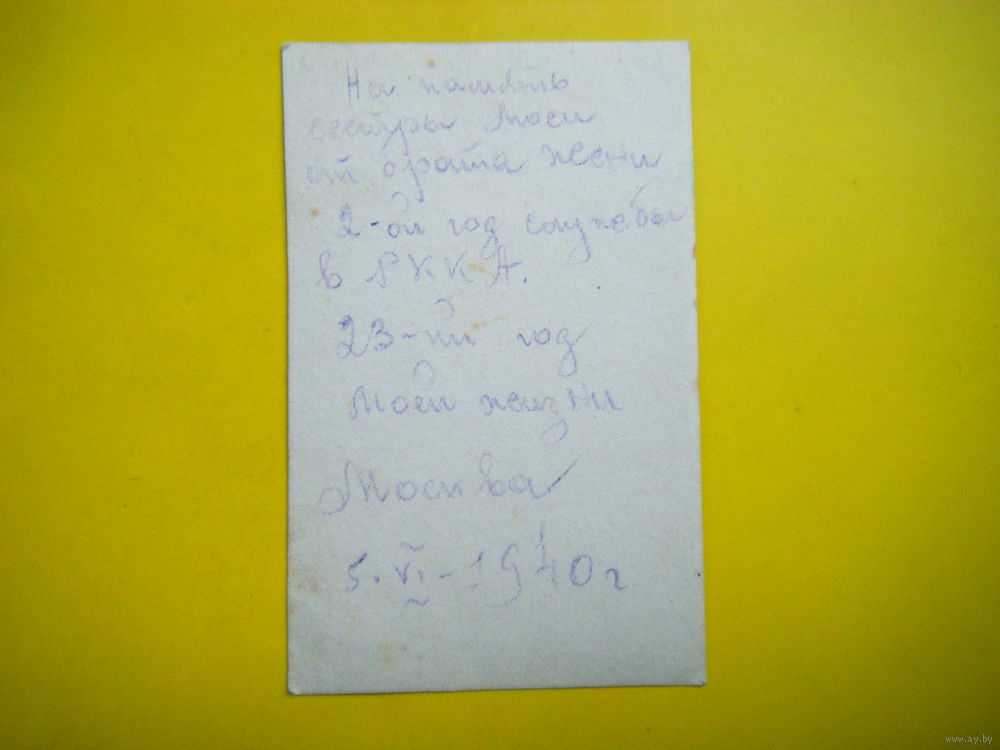 На память
сестры Моеи
от брата жени
2-ой год службы
в РККА.
23-ий год
Моей жизни
Москва
5. VI - 1940 г
www.ay.by